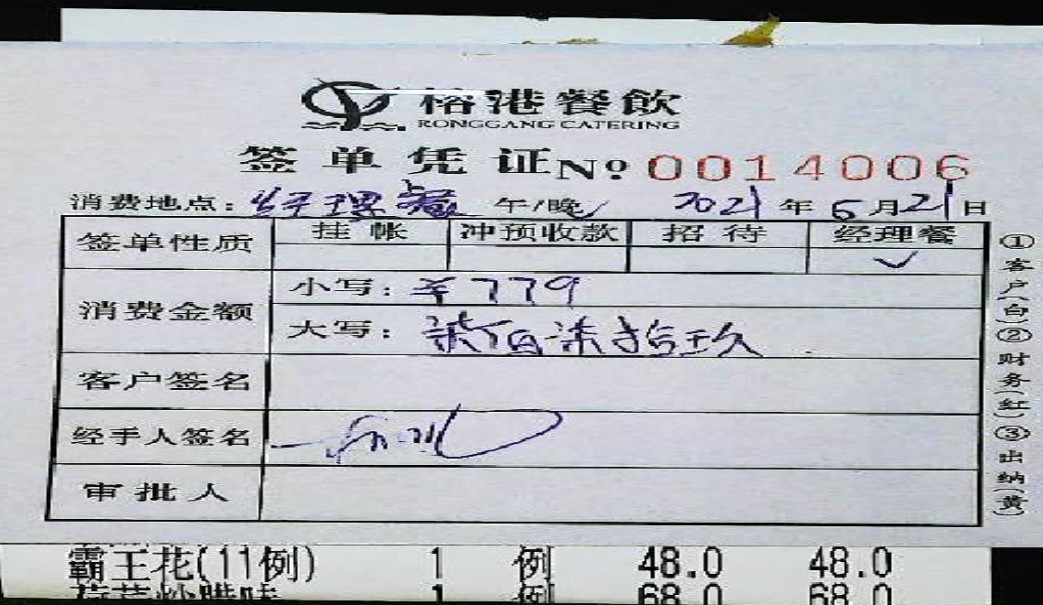 榕港餐飲
RONGGANG CATERING
签单凭证 № 0014006
消费地点：经理餐 午/晚 2021年6月21日
签单性质 挂帐 冲预收款 招待 经理餐
✓
消费金额 小写：¥779
大写：柒佰柒拾玖
客户签名
经手人签名
审批人
①客户(白)②财务(红)③出纳(黄)
霸王花(11例) 1 例 48.0 48.0
1 例 68.0 68.0